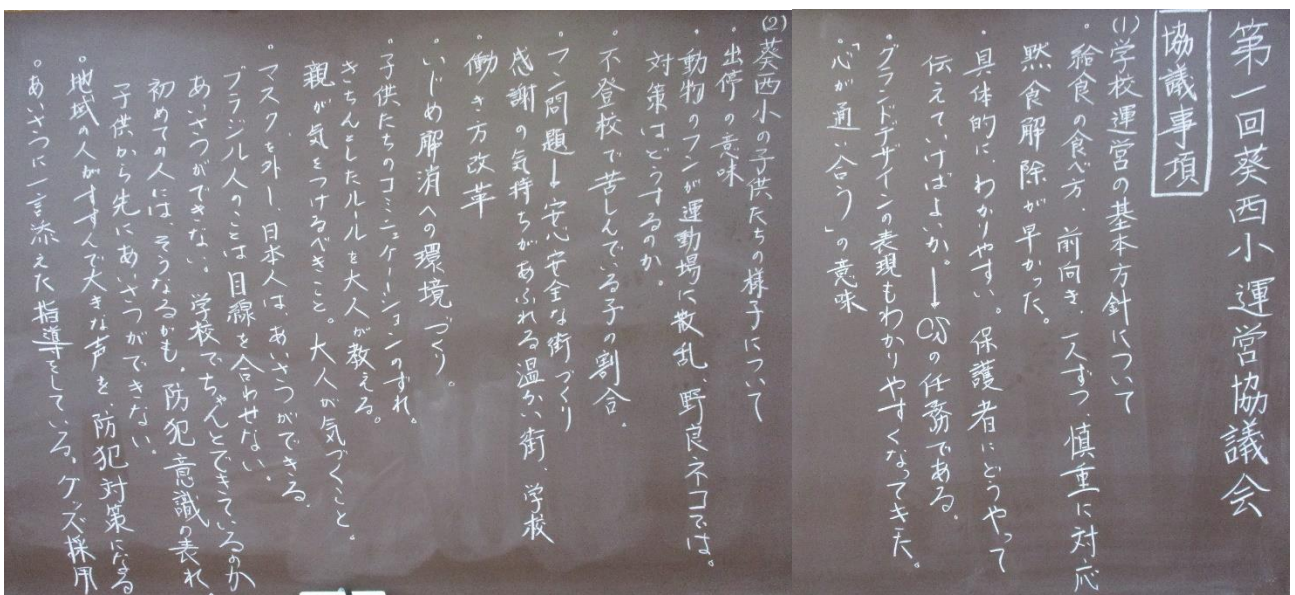 第一回葵西小運営協議会
協議事項
(1)学校運営の基本方針について
・給食の食べ方、前向き、一人ずつ、慎重に対応
黙食解除が早かった。
・具体的に、わかりやすい。保護者にどうやって
伝えていけばよいか。→CSの任務である。
・グランドデザインの表現もわかりやすくなってきた。
・「心が通い合う」の意味
(2)葵西小の子供たちの様子について
・出停の意味
・動物のフンが運動場に散乱、野良ネコでは。
対策はどうするのか。
・不登校で苦しんでいる子の割合。
・フン問題→安心安全な街づくり
感謝の気持ちがあふれる温かい街、学校
・働き方改革
・いじめ解消への環境づくり。
・子供たちのコミュニケーションのずれ。
きちんとしたルールを大人が教える。
親が気をつけるべきこと。大人が気づくこと。
・マスクを外し、日本人は、あいさつができる。
ブラジル人のことは目線を合わせない。
あいさつができない。学校でちゃんとできているのか
初めての人には、そうなるかも。防犯意識の表れ。
子供から先にあいさつができない。
・地域の人がすすんで大きな声を、防犯対策になる
・あいさつに一言添えた指導をしている。グッズ採用